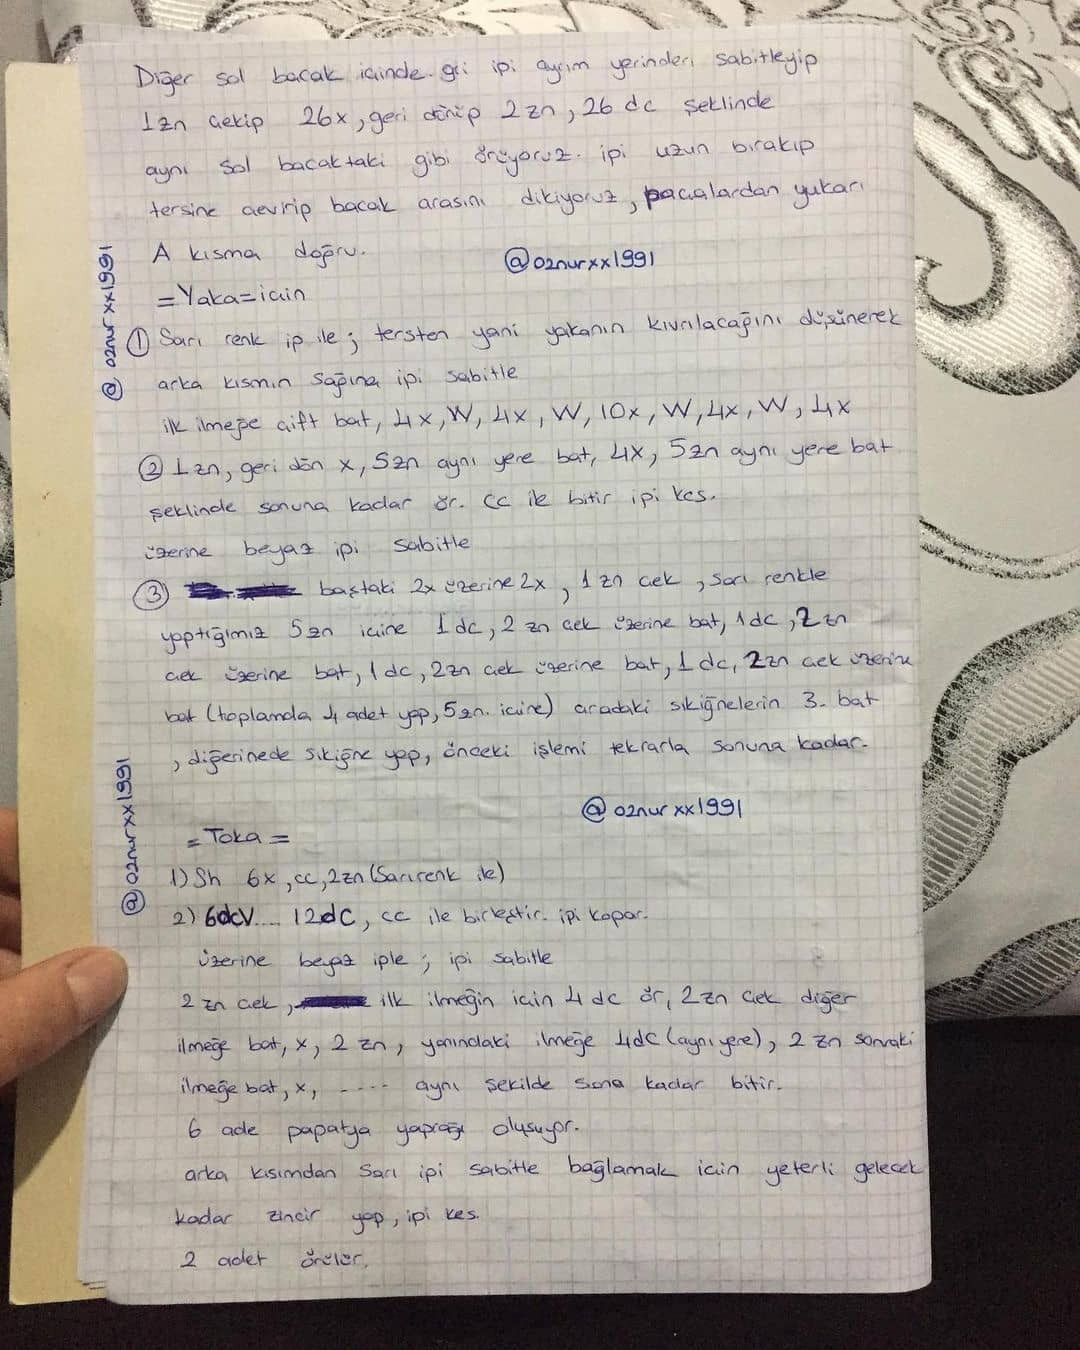 Diğer sol bacak içinde. gri ipi ayrım yerinden sabitleyip
1zn çekip 26x, geri dönüp 2 zn, 26 dc şeklinde
aynı sol bacaktaki gibi örüyoruz. ipi uzun bırakıp
tersine çevirip bacak arasını dikiyoruz, paçalardan yukarı
A kısma doğru.
@oznurxx1991
=Yaka=için
① Sarı renk ip ile; tersten yani yakanın kıvrılacağını düşünerek
arka kısmın sağına ipi sabitle
ilk ilmeğe çift bat, 4x, W, 4x, W, 10x, W, 4x, W, 4x
② 1zn, geri dön x, 5zn aynı yere bat, 4x, 5zn aynı yere bat
şeklinde sonuna kadar ör. cc ile bitir ipi kes.
üzerine beyaz ipi sabitle
③ baştaki 2x üzerine 2x, 1 zn çek, sarı renkle
yaptığımız 5zn içine 1dc, 2 zn çek üzerine bat, 1dc, 2zn
çek üzerine bat, 1dc, 2zn çek üzerine bat, 1 dc, 2zn çek üzerine
bat (toplamda 4 adet yap, 5zn. içine) aradaki sıkiğnelerin 3. bat
, diğerinede sıkiğne yap, önceki işlemi tekrarla sonuna kadar.
@oznurxx1991
= Toka =
1) Sh 6x, cc, 2zn (Sarı renk ile)
2) 6dcV.... 12dc, cc ile birleştir. ipi kopar.
üzerine beyaz iple; ipi sabitle
2 zn çek, ilk ilmeğin için 4 dc ör, 2zn çek diğer
ilmeğe bat, x, 2 zn, yanındaki ilmeğe 4dc (aynı yere), 2 zn sonraki
ilmeğe bat, x, ---- aynı şekilde sona kadar bitir.
6 ade papatya yaprağı oluşuyor.
arka kısımdan sarı ipi sabitle bağlamak için yeterli gelecek
kadar zincir yap, ipi kes.
2 adet örülür.
@oznurxx1991
@oznurxx1991